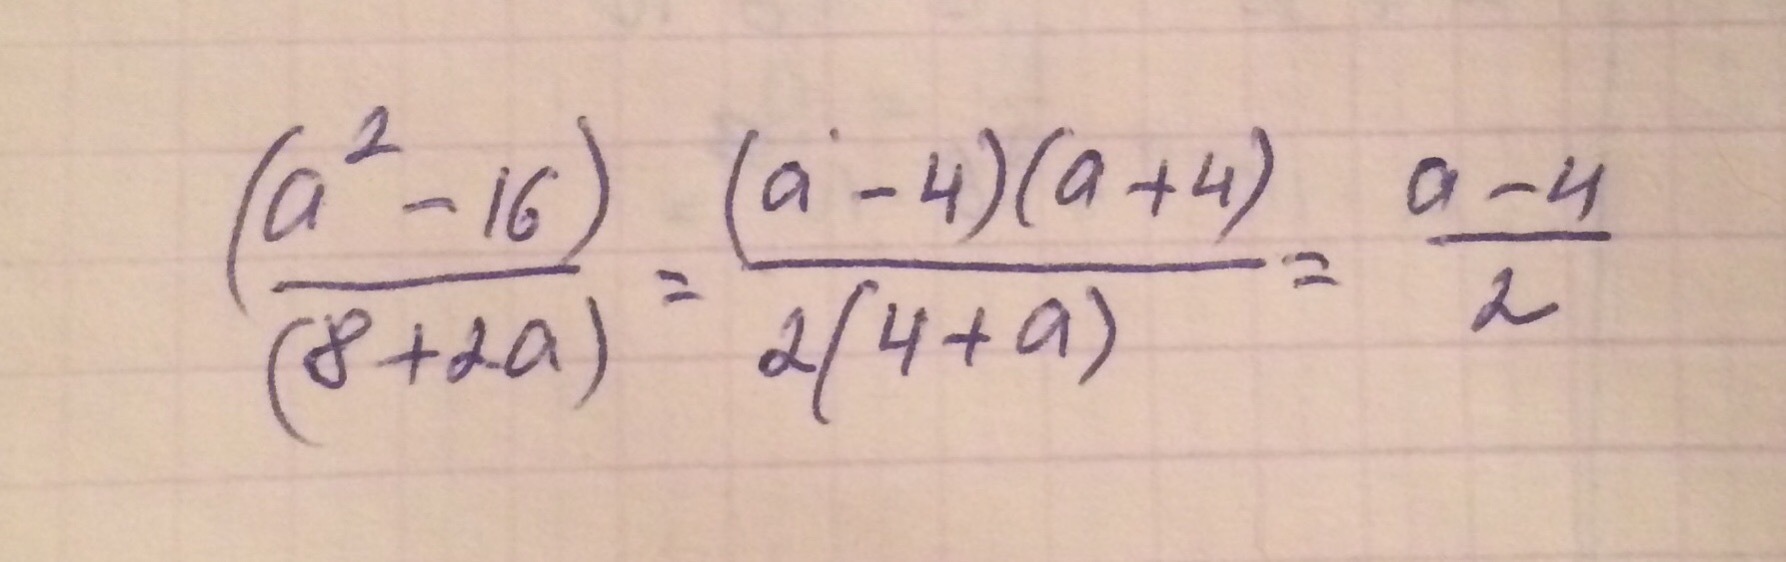 (a² - 16) / (8 + 2a) = (a - 4)(a + 4) / 2(4 + a) = a - 4 / 2